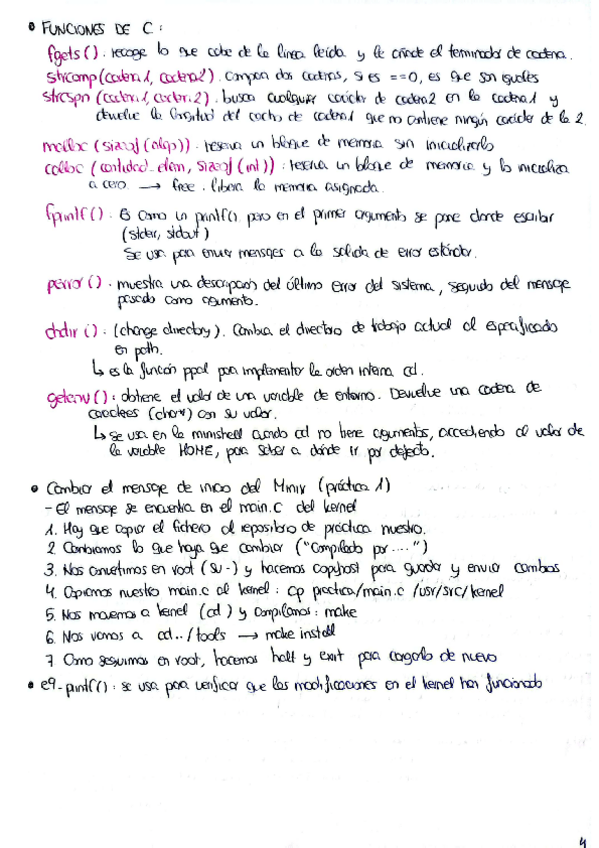 • FUNCIONES DE C:
fgets(). recoge lo que cabe de la linea leída y le añade el terminador de cadena.
strcomp(cadena1, cadena2). compara dos cadenas, si es ==0, es que son iguales
strcspn (cadena1, cadena2). busca cualquier carácter de cadena2 en la cadena1 y
devuelve la longitud del cacho de cadena1 que no contiene ningún carácter de la 2.
malloc (sizeof(algo)). reserva un bloque de memoria sin inicializarlo
calloc (cantidad_elem, sizeof(int)): reserva un bloque de memoria y lo inicializa
a cero. → free. libera la memoria asignada.
fprintf(). Es como un printf(), pero en el primer argumento se pone donde escribir
(stderr, stdout)
Se usa para enviar mensajes a la salida de error estándar.
perror(). muestra una descripción del último error del sistema, seguido del mensaje
pasado como argumento.
chdir(): (change directory). Cambia el directorio de trabajo actual al especificado
en path.
↳ es la función ppal para implementar la orden interna cd.
getenv(): obtiene el valor de una variable de entorno. Devuelve una cadena de
caracteres (char*) con su valor.
↳ se usa en la minishell cuando cd no tiene argumentos, accediendo al valor de
la variable HOME, para saber a dónde ir por defecto.
• Cambiar el mensaje de inicio del Minix (práctica 1)
- El mensaje se encuentra en el main.c del kernel
1. Hay que copiar el fichero al repositorio de práctica nuestro.
2. Cambiamos lo que haya que cambiar ("Compilado por ....")
3. Nos convertimos en root (su -) y hacemos copyhost para guardar y enviar cambios
4. Copiamos nuestro main.c al kernel: cp practica/main.c /usr/src/kernel
5. Nos movemos a kernel (cd) y compilamos: make
6. Nos vamos a cd../tools → make install
7. Como seguimos en root, hacemos halt y exit para cargarlo de nuevo
• e9-printf(): se usa para verificar que las modificaciones en el kernel han funcionado
4